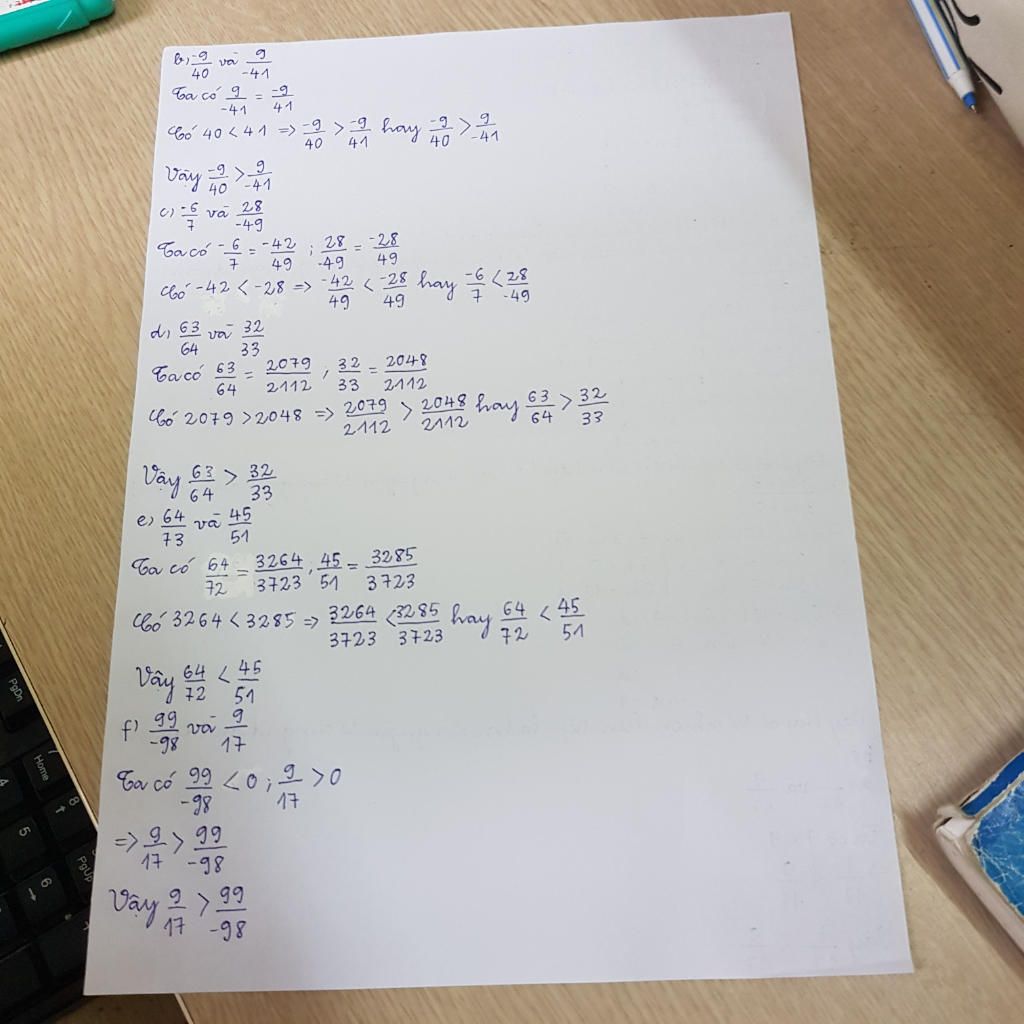 b) -9/40 và 9/-41
Ta có 9/-41 = -9/41
Có 40 < 41 => -9/40 > -9/41 hay -9/40 > 9/-41
Vậy -9/40 > 9/-41
c) -6/7 và 28/-49
Ta có -6/7 = -42/49 ; 28/-49 = -28/49
Có -42 < -28 => -42/49 < -28/49 hay -6/7 < 28/-49
d) 63/64 và 32/33
Ta có 63/64 = 2079/2112 ; 32/33 = 2048/2112
Có 2079 > 2048 => 2079/2112 > 2048/2112 hay 63/64 > 32/33
Vậy 63/64 > 32/33
e) 64/73 và 45/51
Ta có 64/72 = 3264/3723 ; 45/51 = 3285/3723
Có 3264 < 3285 => 3264/3723 < 3285/3723 hay 64/72 < 45/51
Vậy 64/72 < 45/51
f) 99/-98 và 9/17
Ta có 99/-98 < 0 ; 9/17 > 0
=> 9/17 > 99/-98
Vậy 9/17 > 99/-98
PgDn
Home
4
7
8
5
PgUp
6